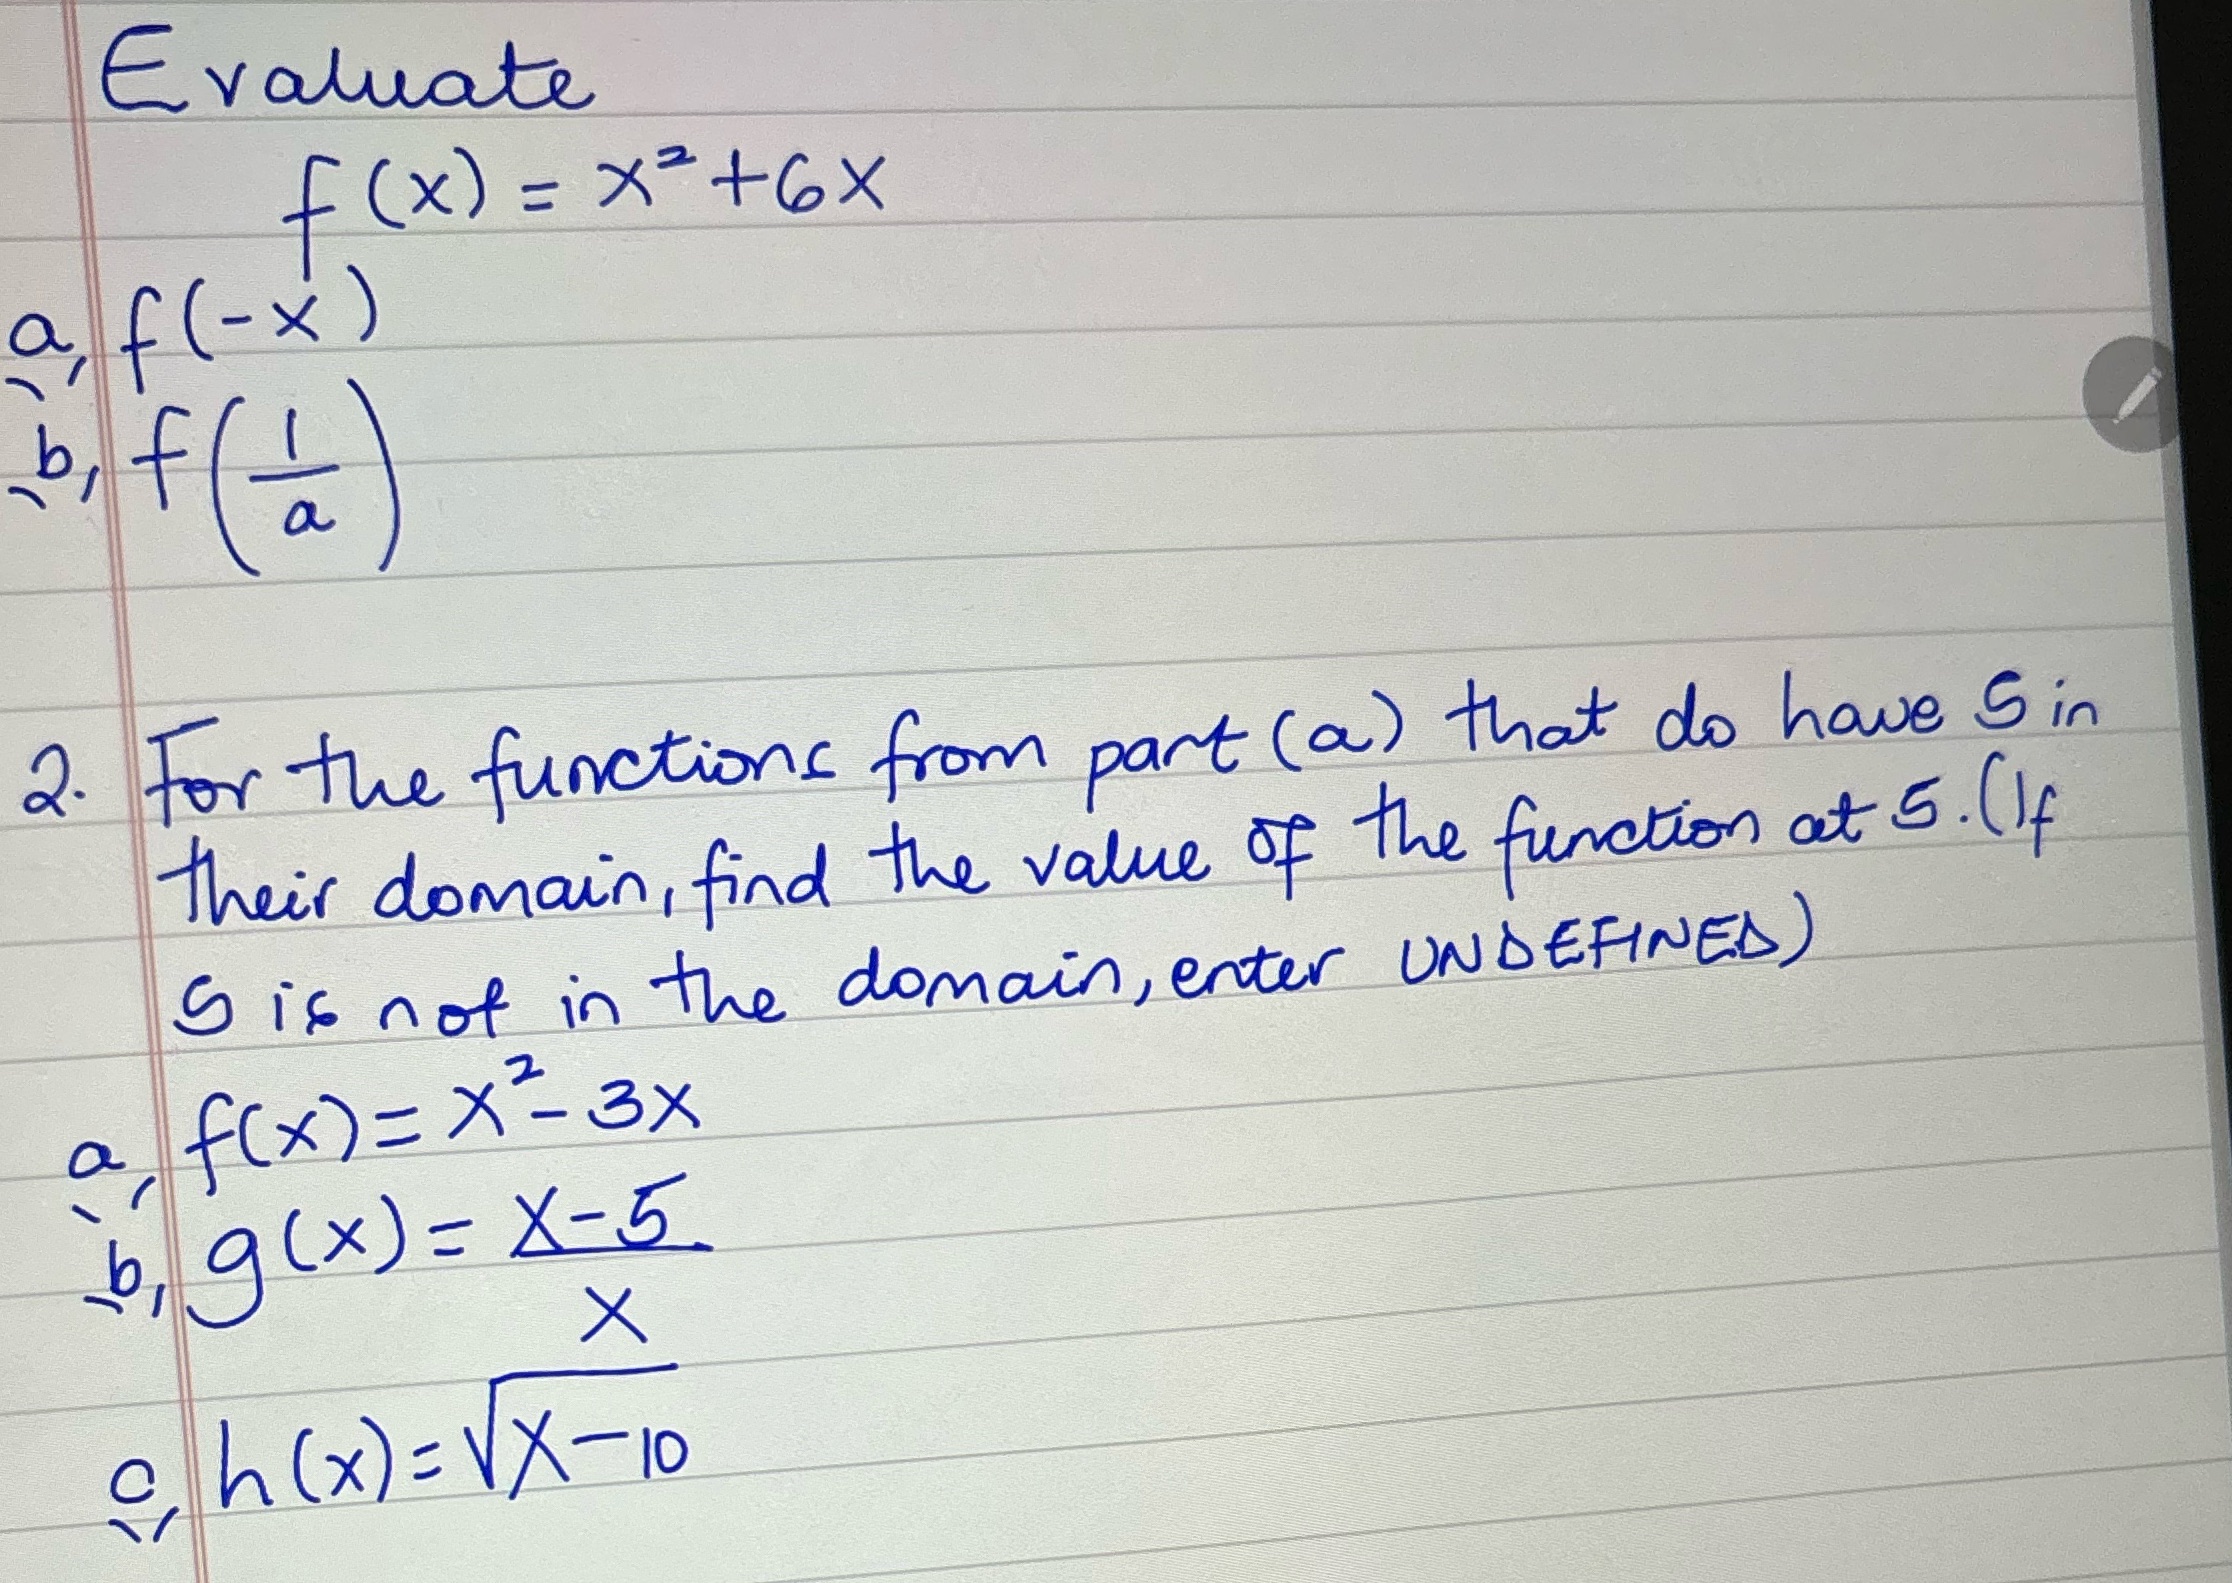 Evaluate
f(x) = x²+6x
a, f(-x)
b, f(1/a)
2. For the functions from part (a) that do have 5 in
their domain, find the value of the function at 5. (If
5 is not in the domain, enter UNDEFINED)
a, f(x) = x² - 3x
b, g(x) = x-5/x
c, h(x) = √x-10